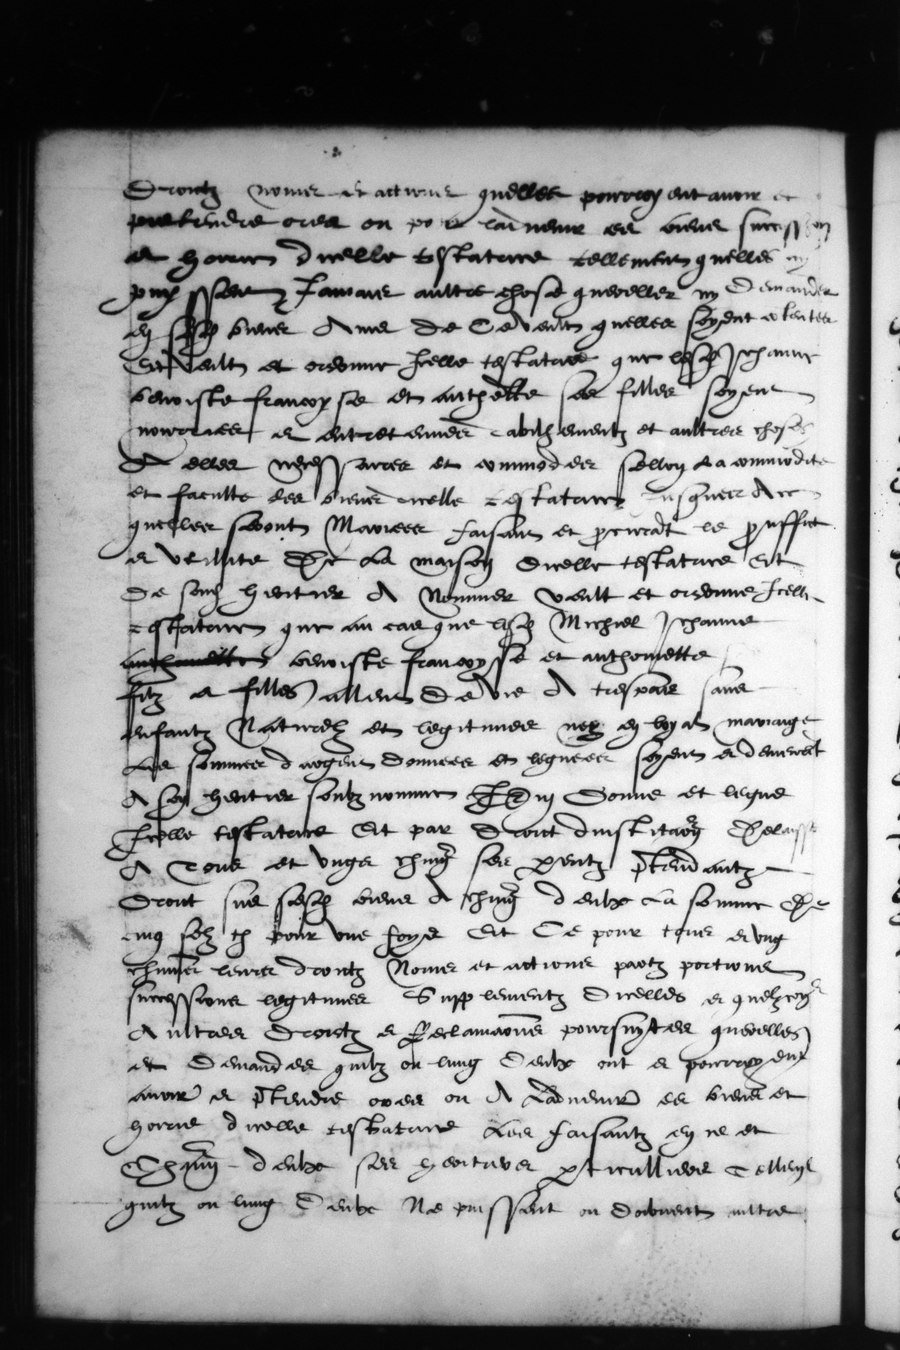 Droictz noms et actions quelles pourroyent avoir et
pretendre ores ou pour ladvenir es biens succession
et hoirie dicelle testatrice tellement quelles ny
puyssent jamais aultre chose quereller ny demander
en sesd biens Ains de ce veult quelles soyent contentes
Et veult et ordonne Icelle testatrice que lesd Jehanne
benoiste francoyse et anthoette ses filles soyent
nourries et entretenues abilhementz et aultres choses
A elles necessaires et commodes sellon La commodite
et faculte des biens dicelle testatrice jusques Ace
quelles seront Mariees faisant et procurant le prouffit
et utilite De La maison dicelle testatrice Et
De son heritier A Nommer veult et ordonne Icelle
testatrice que au cas que lesd Michiel Jehanne
benoiste francoysse et anthoniette
filz et filles allent De vie A trespas sans
enfantz Naturelz et legitimes nez en loyal mariaige
Les sommes dargent donnees et leguees soyent et demeurent
A son heritier soubz nomme Item Donne et legue
Icelle testatrice Et par Droict dinstitution Delaisse
A Tous et ungs chung ses parentz pretendantz
Droict sus sesd biens A chung deulx La somme De
cinq solz tz pour une foys Et Ce pour tous et ung
chascun leurs droictz Noms et actions partz portions
successions legitimes Supplementz Dicelles et quelzcoques
Aultres Droictz et Reclamations poursuytes querelles
et Demandes quilz ou lung Deulx ont et pourroyent
avoir et pretendre ores ou A Ladvenir es biens et
hoirie dicelle testatrice Les faisantz en ce et
Chacun deulx ses heritiers particulliers Tellement
quilz ou lung Deulx Ne puissent ou doibvent aultre